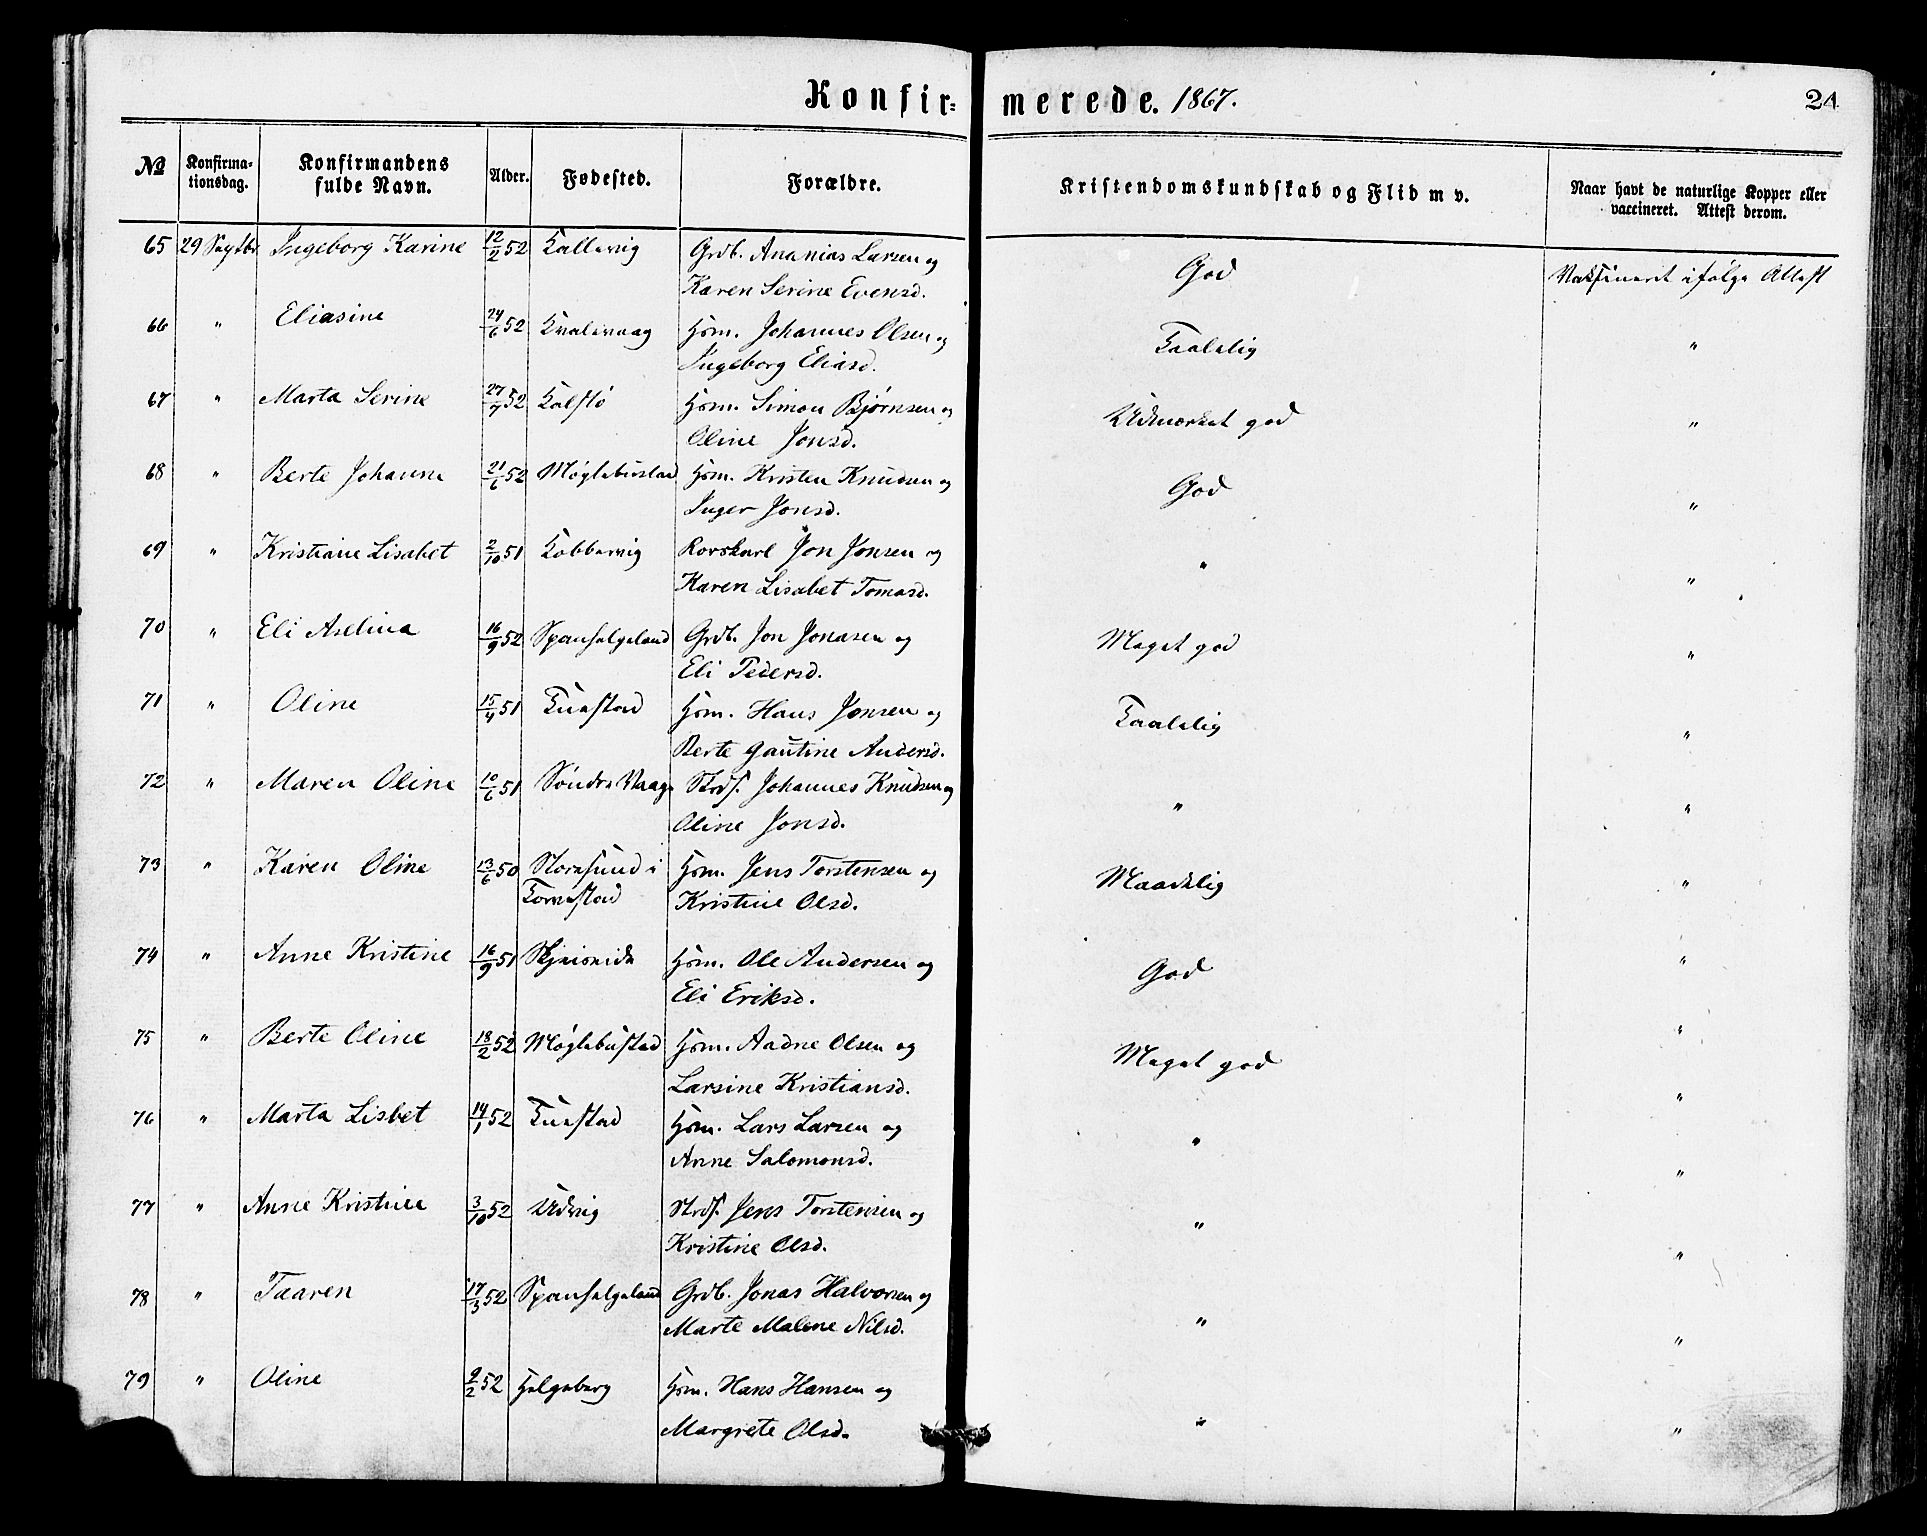 Konfir= merede. 1867. 24
№ Konfirma- Konfirmandens Alder. Fødested. Forældre. Kristendomskundskab og Flid m v. Naar havt de naturlige Kopper eller
tionsdag. fulde Navn. vaccineret. Attest derom.
65 29 Septbr Ingeborg Karine 12/2 52 Kallevig Grdb. Ananias Larsen og God Vaksineret ifølge Attest
Karen Serine Evensd.
66 " Eliasine 24/6 52 Kvalevaag Hsm. Johannes Olsen og Taalelig "
Ingeborg Eliasd.
67 " Marta Serine 27/7 52 Kalstø Hsm. Simon Bjørnsen og Udmærket god "
Oline Jonsd.
68 " Berte Johanne 21/6 52 Møglebustad Hsm. Kristen Knudsen og God "
Inger Jonsd.
69 " Kristiane Lisabet 2/10 51 Kobbervig Rorskarl Jon Jonsen og " "
Karen Lisabet Tomasd.
70 " Eli Aselina 16/9 52 Spanhelgeland Grdb. Jon Jonasen og Meget god "
Eli Pedersd.
71 " Oline 15/4 51 Tuastad Hsm. Hans Jonsen og Taalelig "
Berte Gautine Andersd.
72 " Maren Oline 10/6 51 Søndre Vaage Strds. Johannes Knudsen og " "
Oline Jonsd.
73 " Karen Oline 13/6 50 Storesund i Hsm. Jens Torstensen og Maadelig "
Tornestad Kristine Olsd.
74 " Anne Kristine 16/9 51 Hsm. Ole Andersen og God "
Eli Eriksd.
75 " Berte Oline 18/2 52 Møglebustad Hsm. Aadne Olsen og Meget god "
Larsine Kristiansd.
76 " Marta Lisbet 14/1 52 Tuastad Hsm. Lars Larsen og " "
Anne Salomonsd.
77 " Anne Kristine 3/10 52 Udvig Strds. Jens Torstensen og " "
Kristine Olsd.
78 " Taaren 17/3 52 Spanhelgeland Grdb. Jonas Halvorsen og " "
Marte Malene Nilsd.
79 " Oline 9/2 52 Helgeberg Hsm. Hans Hansen og " "
Margrete Olsd.